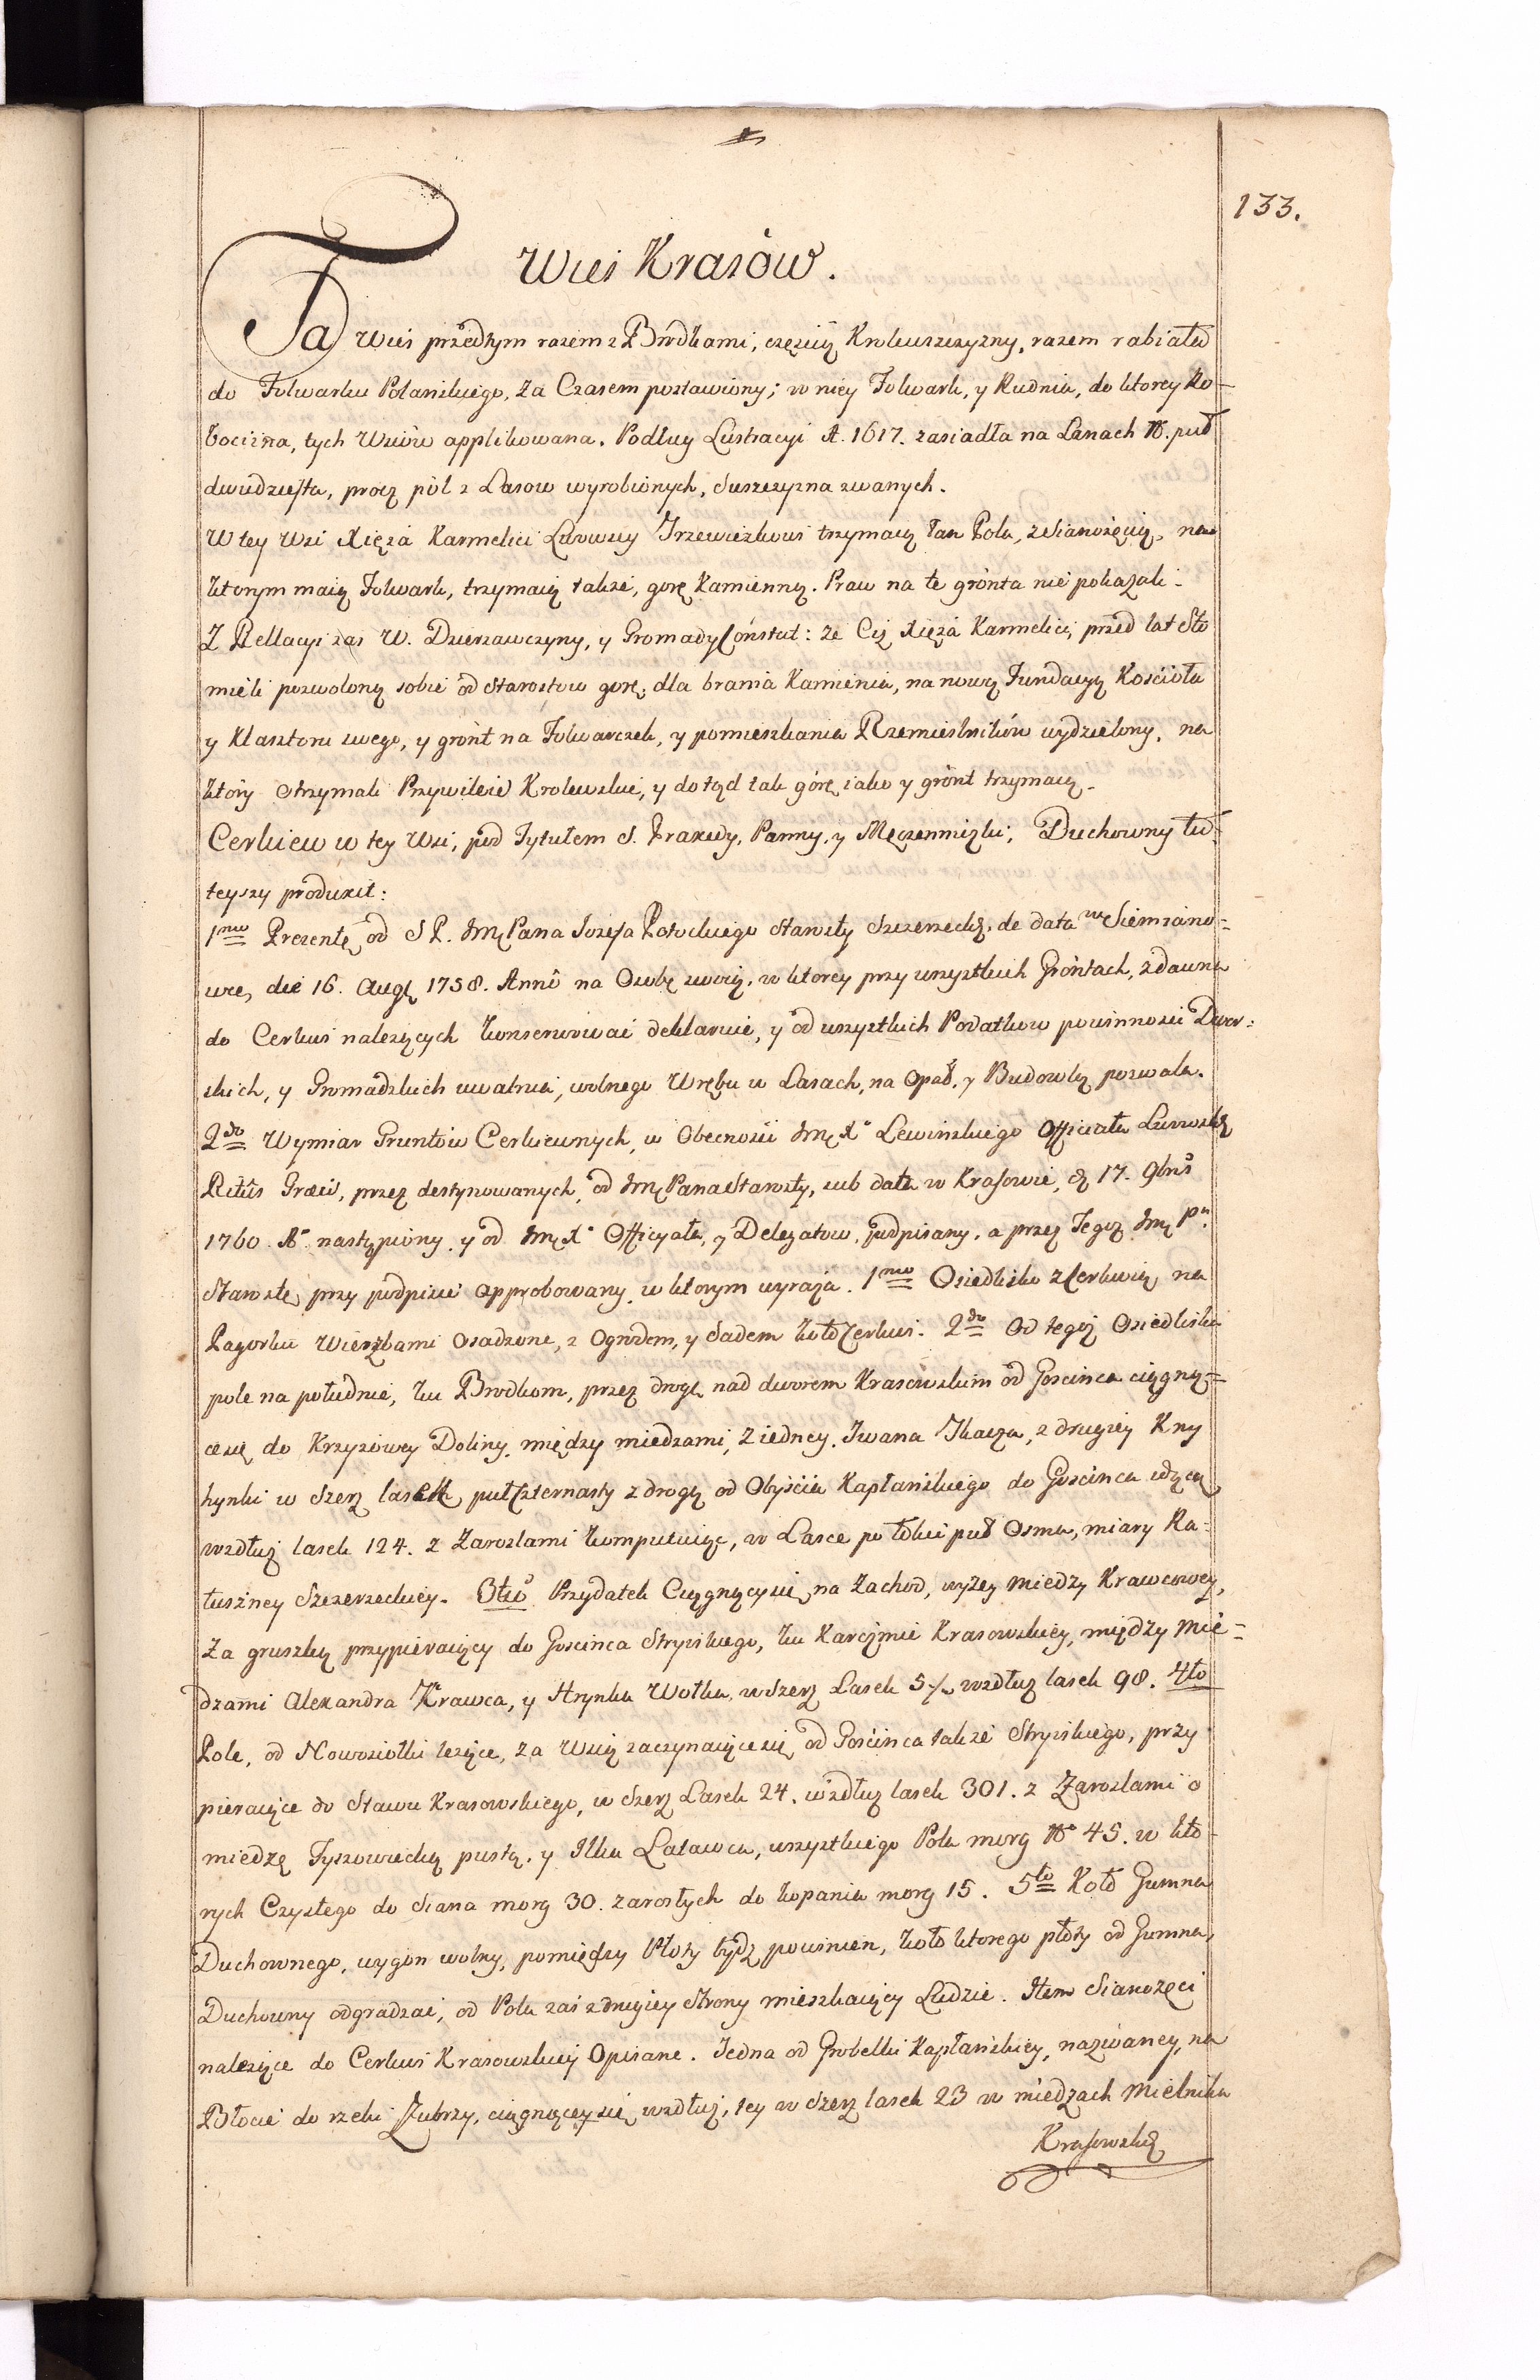 133.
Wies Krasów.
Ta Wieś przedtym razem z Brodkami, częścią Knihuszczyzny, razem rabiała
do Folwarku Polanskiego, za Czasem postawiony; w niey Folwark, y Rudnia, do ktorey Ro-
bocizna, tych Wsiów applikowana. Podług Lustracyi A. 1617. zasiadła na Lanach N. puł
dwudziesta, procz pól z Lasow wyrobionych, Suszczyzna zwanych.
W tey Wsi Xięża Karmelici Lwowscy Trzewiczkowi trzymaią łan Pola, z Sianożęcią, na
ktorym maią Folwark, trzymaią także, gorę Kamienną. Praw na te grònta nie pokazali.
Z Rellacyi zas W. Dzierzawczyny, y Gromady Constat: że Ciż Xięża Karmelici, przed lat Sto
mieli pozwoloną sobie od Starostow gorę, dla brania Kamienia, na nową Fundacyą Kościoła
y Klasztoru swego, y grònt na Folwarczek, y pomieszkania Rzemieslników wydzielony, na
ktòry otrzymali Przywileie Krolewskie, y dotąd tak górę iako y grònt trzymaią.
Cerkiew w tey Wsi, pod Tytułem S. Praxedy, Panny, y Męczenniczki; Duchowny tu-
teyszy produxit:
1mo Prezentę od S P. Jmę Pana Jozefa Potockiego Starosty Szczerzeckg. de data w Siemiano-
wce, die 16. Augę 1758. Annô na Osobę swoię, w ktorey przy wszystkich Gróntach, zdawna
do Cerkwi nalezących konserwować deklaruie, y od wszystkich Podatkow powinnosci Dwor-
skich, y Gromadzkich uwalnia, wolnego Wrębu w Lasach, na Opał, y Budowlę pozwala.
2do Wymiar Gruntów Cerkiewnych, w Obecności Jmę X. Lewinskiego Officiała Lwowskg
Ritûs Graeci, przez destynowanych, od Jmę Pana Starosty, sub data w Krasowie, d 17. 9bris
1760. A° nastąpiony, y od Jmę X. Officyała, y Delegatow, podpisany, a przez Tegoż Jmę Pn.
Starostę przy podpisie approbowany, w ktorym wyraża. 1mo Osiedlisko z Cerkwią na
Pagorku Wierzbami Osadzone, z Ogrodem, y Sadem koło Cerkwi. 2do Od tegoż Osiedliska
pole na południe, ku Brodkom, przez drogę nad dworem Krasowskim od Goscinca ciągną-
ce się do Krzyzowey Doliny, między miedzami, z iedney, Iwana Tkacza, z drugiey Kny
hynki w Szerz lasek puł Czternasty z drogą od Obyścia Kapłańskiego do Goscinca idącą
wzdłuż lasek 124. z Zaroslami komputuiąc, w Lasce po łokci puł Osma, miary Ra-
tuszney Szczerzeckiey. 3tio Przydatek Ciągnący się na Zachod, wyżey miedzy Krawcowey,
za gruszką przypieraiący do Goscinca Stryiskiego, ku Karczmie Krasowskiey, między Mie-
dzami Alexandra Krawca, y Hrynka Wolka, w Szerz Lasek 5½ wzdłuż lasek 98. 4to
Pole, od Nowosiołki leżące, za Wsią zaczynaiące się, od Gościnca także Stryiskiego, przy
pieraiące do Stawu Krasowskiego, w Szerz Lasek 24. wzdłuż lasek 301. z Zaroslami o
miedzę Tyszowiecką pustą, y Ilka Latawca, wszystkiego Pola morg N° 45. w kto-
rych Czystego do Siana morg 30. zarosłych do kopania morg 15. 5to Koło Gumna
Duchownego, wygon wolny, pomiędzy Płoty bydź powinien, koło ktorego płoty od Gumna,
Duchowny odgradzać, od Pola zaś z drugiey Strony mieszkaiący Ludzie. Item Sianożęci
nalezące do Cerkwi Krasowskiey Opisane. Jedna od Grobelki Kapłańskiey, nazwaney, na
Błocie do rzeki Zubrzy, ciągnącey się wzdłuż, tey w Szerz lasek 23 w miedzach Mielnika
Krasowskg